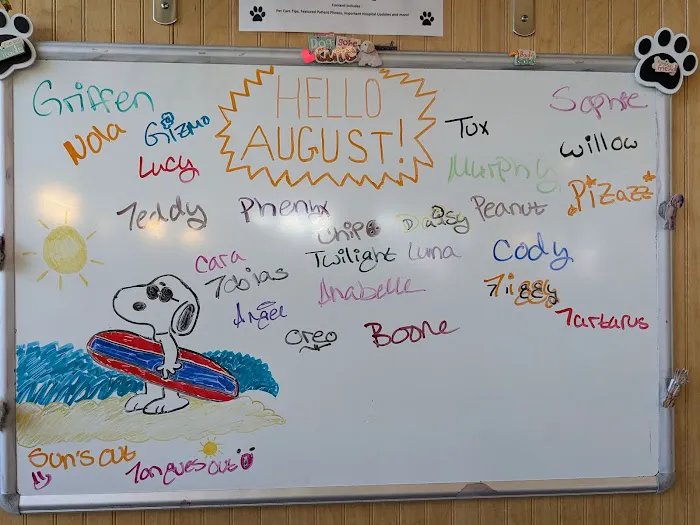 Content Includes :
For Care Tips, Featured Patient Photos, Important Hospital Updates and more!
HELLO
AUGUST!
Griffen
Nola
Gizmo
Lucy
Tux
Sophie
Willow
Murphy
Pizazz
Teddy
Phenyx
Chip
Daisy
Peanut
Cara
Tobias
Twilight
Luna
Cody
Angel
Anabelle
Tiggy
Tartarus
Oreo
Boone
Sun's out
Tongues out